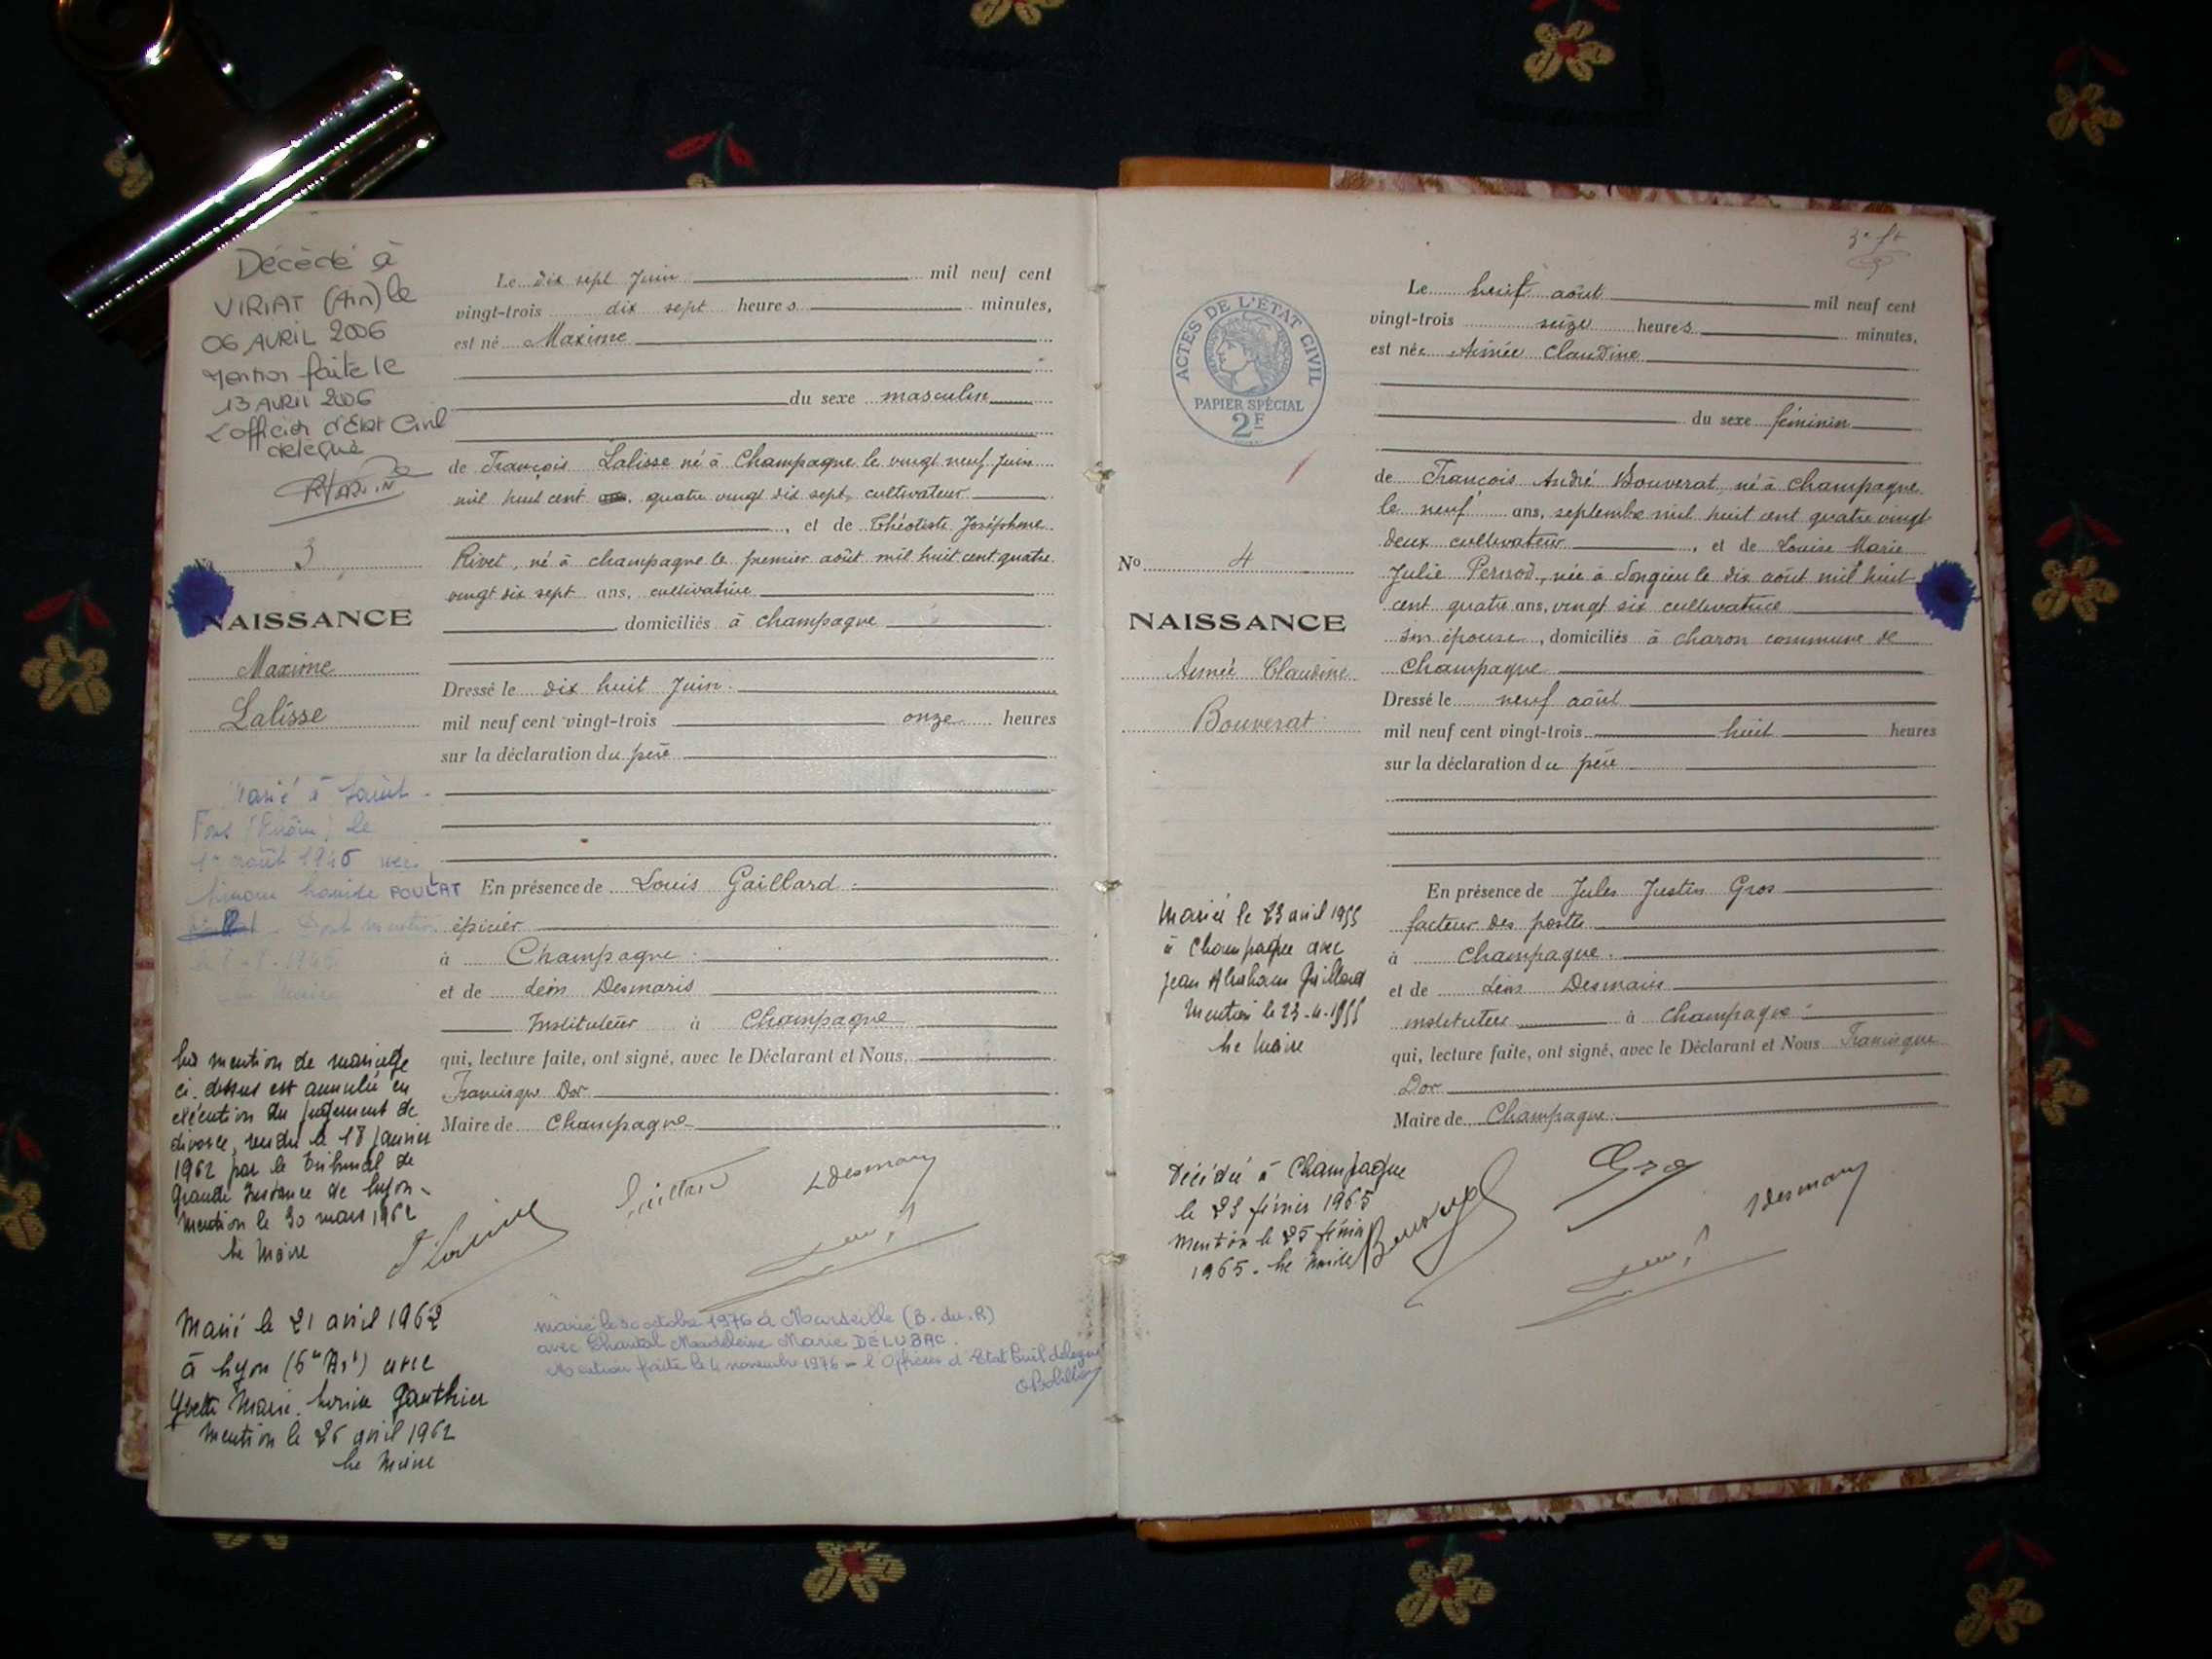 Décédé à
VIRIAT (Ain) le
06 AVRIL 2006
Mention faite le
13 AVRIL 2006
L'officier d'Etat Civil
délégué
No 3
NAISSANCE
Maxime
Lalisse
Marié à Saint-
Fons (Rhône) le
1er août 1946 avec
POULLAT
Dont mention
La mention de mariage
ci-dessus est annulée en
exécution du jugement de
divorce, rendu le 18 janvier
1962 par le Tribunal de
Grande Instance de Lyon-
Mention le 30 mars 1962
Le Maire
Marié le 21 avril 1962
à Lyon (6e Art) avec
Yvette Marie Gauthier
Mention le 26 avril 1962
Le Maire
Le dix sept Juin mil neuf cent
vingt-trois dix sept heures minutes,
est né Maxime
du sexe masculin
de François Lalisse né à Champagne le vingt neuf Juin
mil huit cent quatre vingt dix sept, cultivateur
, et de Théotiste Joséphine
Rivet, né à champagne le premier août mil huit cent quatre
vingt dix sept ans, cultivatrice
domiciliés à champagne
Dressé le dix huit Juin
mil neuf cent vingt-trois onze heures
sur la déclaration du père
En présence de Louis Gaillard
épicier
à Champagne
et de Léon Desmaris
Instituteur à Champagne
qui, lecture faite, ont signé, avec le Déclarant et Nous,
Francisque Dor
Maire de Champagne
Gaillard LDesmaris
marié le 30 octobre 1976 à Marseille (B. du. R)
avec Chantal Madeleine Marie DÉLUBAC.
Mention faite le 4 novembre 1976 - l'Officier d'Etat Civil délégué
ACTES DE L'ÉTAT CIVIL
PAPIER SPÉCIAL
2F
No 4
NAISSANCE
Aimée Claudine
Bouverat
Mariée le 23 avril 1955
à Champagne avec
Jean Abraham Guillard
Mention le 23-4-1955
Le Maire
Décédée à Champagne
le 23 février 1965
Mention le 25 février
1965. Le Maire
Le huit août mil neuf cent
vingt-trois seize heures minutes,
est née Aimée Claudine
du sexe féminin
de François André Bouverat, né à Champagne
le neuf ans, septembre mil huit cent quatre vingt
deux cultivateur , et de Louise Marie
Julie Pernod, née à Songieu le dix août mil huit
cent quatre ans, vingt six cultivatrice
son épouse, domiciliés à charon commune de
Champagne
Dressé le neuf août
mil neuf cent vingt-trois huit heures
sur la déclaration du père
En présence de Jules Justin Gros
facteur des postes
à Champagne.
et de Léon Desmaris
instituteur à Champagne
qui, lecture faite, ont signé, avec le Déclarant et Nous Francisque
Dor
Maire de Champagne
Bouverat Gros LDesmaris